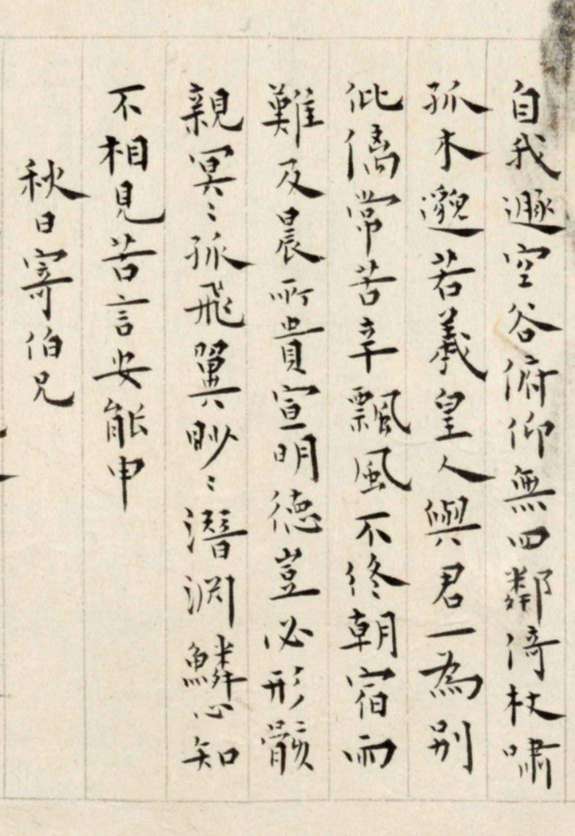 自我遯空谷俯仰無四鄰倚杖嘯
孤木邈若羲皇人與君一為別
仳常苦辛飄風不終朝宿雨
難及晨所貴宣明德豈必形骸
親冥〻孤飛翼眇〻潛淵鱗心知
不相見苦言安能申
秋日寄伯兄